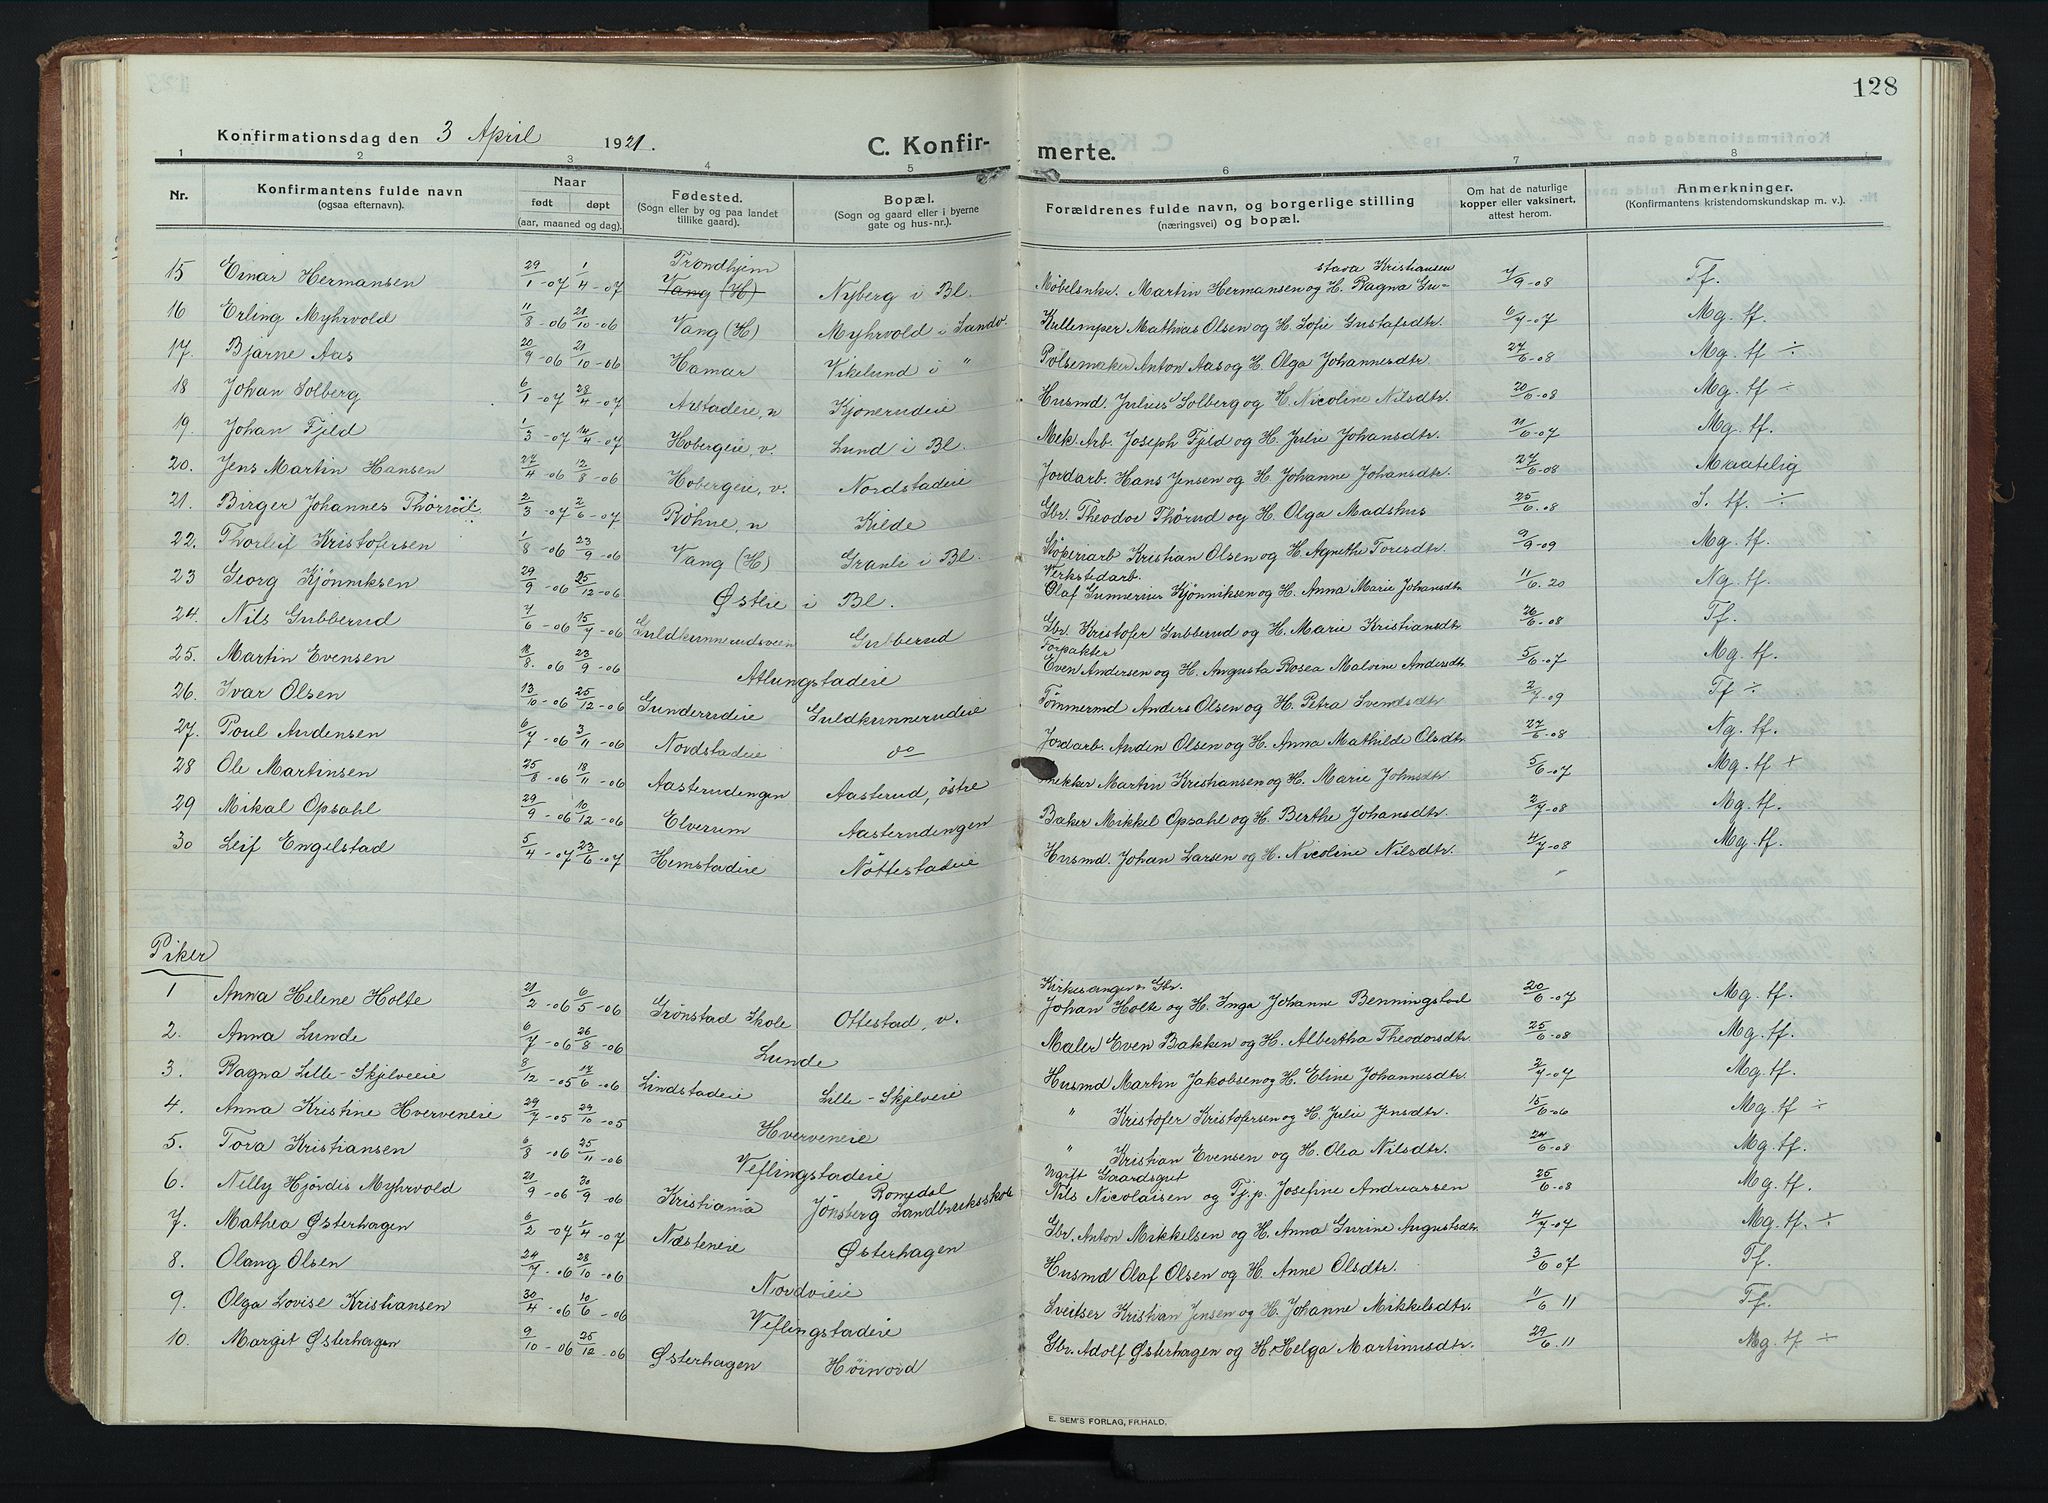 128
Konfirmationsdag den 3 April 1921.
C. Konfirmerte.
1 2 3 4 5 6 7 8
Nr. Konfirmantens fulde navn (ogsaa efternavn). Naar født døpt (aar, maaned og dag). Fødested. (Sogn eller by og paa landet tillike gaard). Bopæl. (Sogn og gaard eller i byerne gate og hus-nr.). Forældrenes fulde navn, og borgerlige stilling (næringsvei) og bopæl. Om hat de naturlige kopper eller vaksinert, attest herom. Anmerkninger. (Konfirmantens kristendomskundskap m. v.).
15 Einar Hermansen 29/1-07 1/4-07 Trondhjem Vang (H) Nyberg i Bl. Møbelsnkr. Martin Hermansen og H. Ragna Gustava Kristiansen 7/9-08 Tf.
16 Erling Myhrvold 11/8-06 21/10-06 Vang (H) Myhrvold i Sandv. Kullemper Mathias Olsen og H. Sofie Gustafsdtr. 6/7-07 Mg. tf.
17. Bjarne Aas 20/9-06 21/10-06 Hamar Vikelund i " Pølsemaker Anton Aas og H. Olga Johannesdtr. 27/6-08 Mg. tf ÷
18 Johan Solberg 6/1-07 28/4-07 Arstadeie, n Kjonerudeie Husmd. Julius Solberg og H. Nicoline Nilsdtr. 20/6-08 Mg. tf ÷
19. Johan Fjeld 1/3-07 14/4-07 Hobergeie, v. Lund i Bl. Mek. Arb. Joseph Fjeld og H. Julie Johansdtr. 11/6-07 Mg. tf.
20. Jens Martin Hansen 27/4-06 12/8-06 Hobergeie, v. Nordstadeie Jordarb. Hans Jensen og H. Johanne Johansdtr. 27/6-08 Maatelig
21. Birger Johannes 2/3-07 2/6-07 Røhne, n Kilde Gbr. Theodor Thørud og H. Olga Madshus 25/6-08 S. tf. ÷
22. Thorleif Kristofersen 1/8-06 23/9-06 Vang (H) Granli i Bl. Støperiarb Kristian Olsen og H. Agnethe Toresdtr. 9/9-09 Mg. tf.
23 Georg Kjønniksen 29/9-06 25/12-06 Østlie i Bl. Verkstedarb. Olaf Gunnerius Kjønniksen og H. Anna Marie Johansdtr 11/6-20 Ng. tf.
24. Nils Gubberud 7/6-06 15/7-06 Guldkunnerudsveen Gubberud Gbr. Kristofer Gubberud og H. Marie Kristiansdtr 26/6-08 Tf.
25. Martin Evensen 18/8-06 23/9-06 Atlungstadeie Forpakter Even Andersen og H. Augusta Rosea Malvine Andersdtr 5/6-07 Mg. tf.
26. Ivar Olsen 13/10-06 25/12-06 Gunderudeie Guldkunnerudeie Tømmermd Anders Olsen og H. Petra Svendsdtr. 2/7-09 Tf ÷
27. Poul Andensen 6/7-06 3/11-06 Nordstadeie do Jordarb. Anden Olsen og H. Anna Mathilde Olsdtr 27/6-08 Ng. tf.
28 Ole Martinsen 25/8-06 18/11-06 Aasterudengen Aasterud, østre Martin Kristiansen og H. Marie Johnsdtr. 5/6-07 Mg. tf +
29 Mikal Opsahl 29/9-06 10/12-06 Elverum Aasterudengen Baker Mikkel Opsahl og H. Berthe Johansdtr. 2/7-08 Mg. tf.
30 Leif Engelstad 5/4-07 23/6-07 Hemstadeie Nøttestadeie Husmd. Johan Larsen og H. Nicoline Nilsdtr. 4/7-08 Mg. tf.
Piker
1 Anna Helene Holte 21/2-06 6/5-06 Grønstad Skole Ottestad, v. Kirkesanger Gbr. Johan Holte og H. Inga Johanne Benningstad 20/6-07 Mg. tf.
2. Anna Lunde 6/7-06 26/8-06 Lunde Maler Even Bakken og H. Albertha Theodorsdtr. 25/6-08 Mg. tf.
3. Ragna Lille-Skjelveeie 8/12-05 17/6-06 Lindstadeie Lille-Skjelveie Husmd Martin Jakobsen og H. Eline Johannesdtr. 2/7-07 Mg. tf.
4. Anna Kristine Hverveneie 29/7-05 29/10-05 Hverveneie " Kristofer Kristofersen og H. Julie Jensdtr. 15/6-06 Mg. tf ÷
5. Tora Kristiansen 6/8-06 25/11-06 Veflingstadeie " Kristian Evensen og H. Olea Nilsdtr. 24/6-08 Mg. tf.
6. Nelly Hjørdis Myhrvold 21/9-06 30/9-06 Kristiania Romedal Jønsberg Landbruksskole Ugift Gaardsgut Nils Nicolaisen og Tj.p. Josefine Andreassen 25/6-08 Mg. tf.
7. Mathea Østerhagen 6/2-07 1/4-07 Næsteneie Østerhagen Gbr. Anton Mikkelsen og H. Anna Gurine Augustsdtr. 4/7-07 Mg. tf. ÷
8. Olaug Olsen 24/7-06 28/10-06 Nordvieie Husmd Olaf Olsen og H. Anne Olsdtr. 3/6-07 Tf.
9. Olga Lovise Kristiansen 30/4-06 10/6-06 Veflingstadeie Sveitser Kristian Jensen og H. Johanne Mikkelsdtr. 11/6 11 Tf.
10. Margit Østerhagen 9/10-06 25/12-06 Østerhagen Høinord Gbr. Adolf Østerhagen og H. Helga Martinusdtr. 29/6 11 Mg. tf ÷
E. SEM'S FORLAG, FR.HALD.